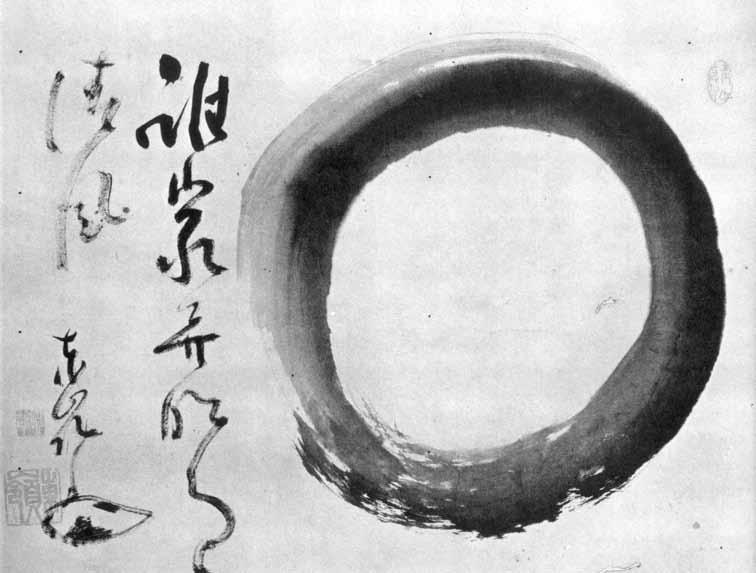 誰家無明月
清風
東嶺